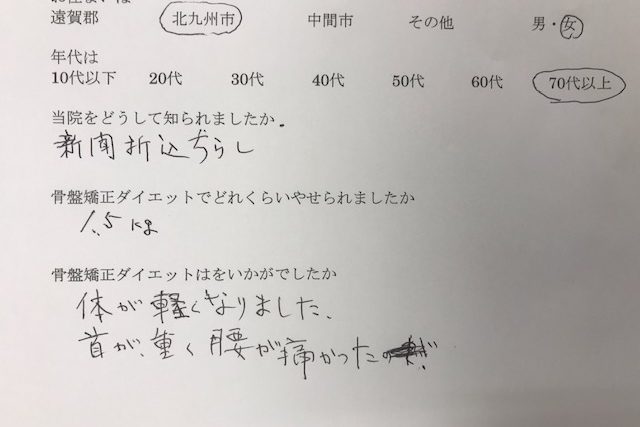 お住まいは
遠賀郡 北九州市 中間市 その他 男・女
年代は
10代以下 20代 30代 40代 50代 60代 70代以上
当院をどうして知られましたか。
新聞折込ちらし
骨盤矯正ダイエットでどれくらいやせられましたか
1.5kg
骨盤矯正ダイエットはをいかがでしたか
体が軽くなりました、
首が、重く腰が痛かったの